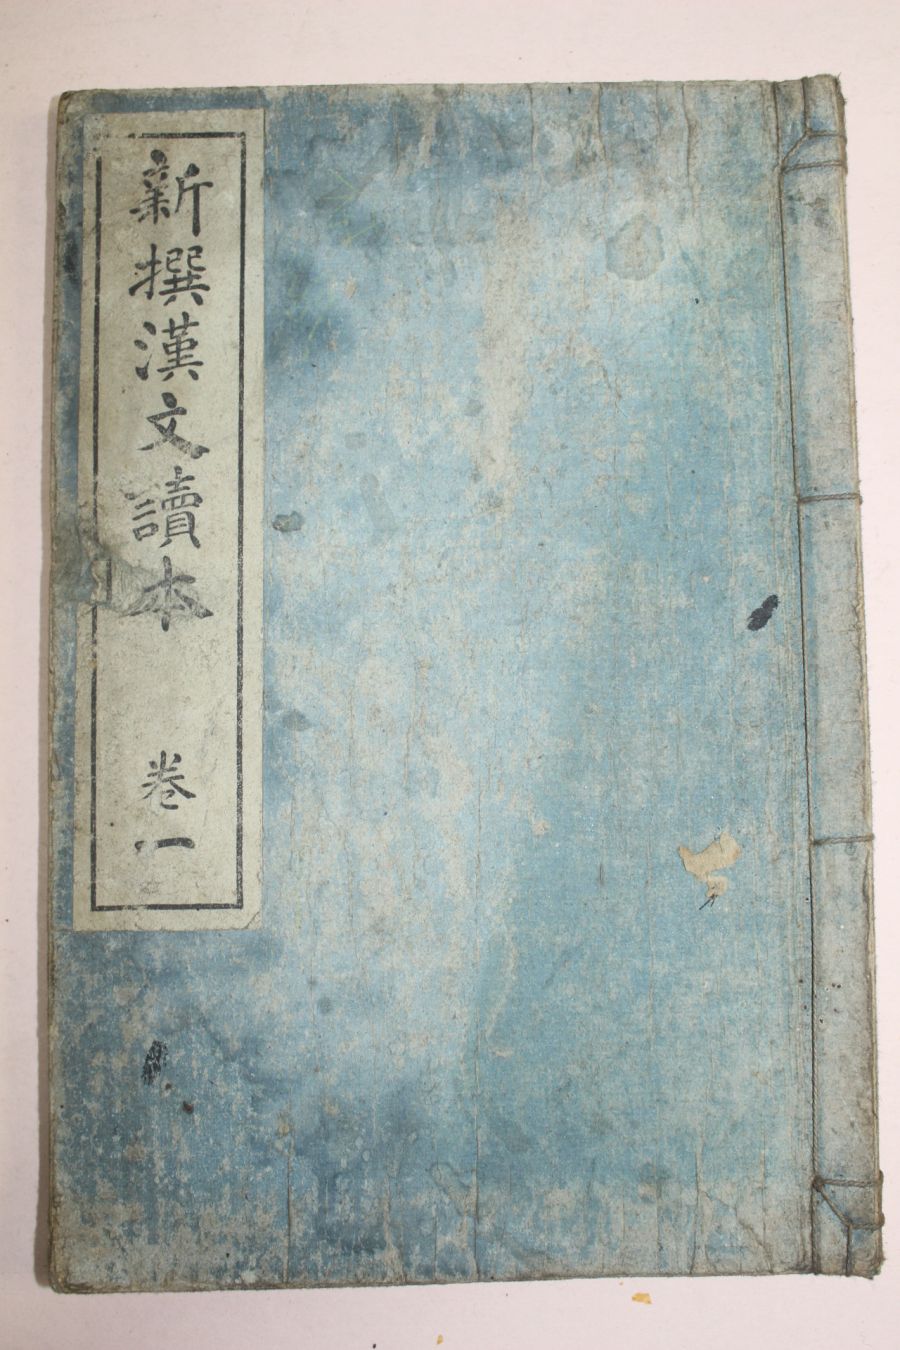 新撰漢文讀本 卷一